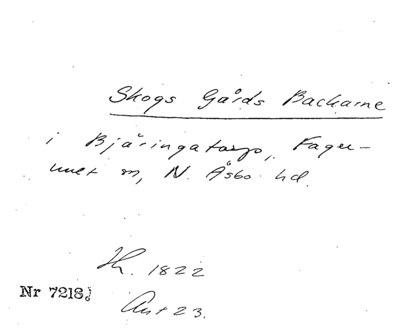 Skogs Gårds Backarne
i Bjäringatorp, Fager-
hult m, N. Åsbo hd.
Th. 1822
Nr 7218.
Ant 23.